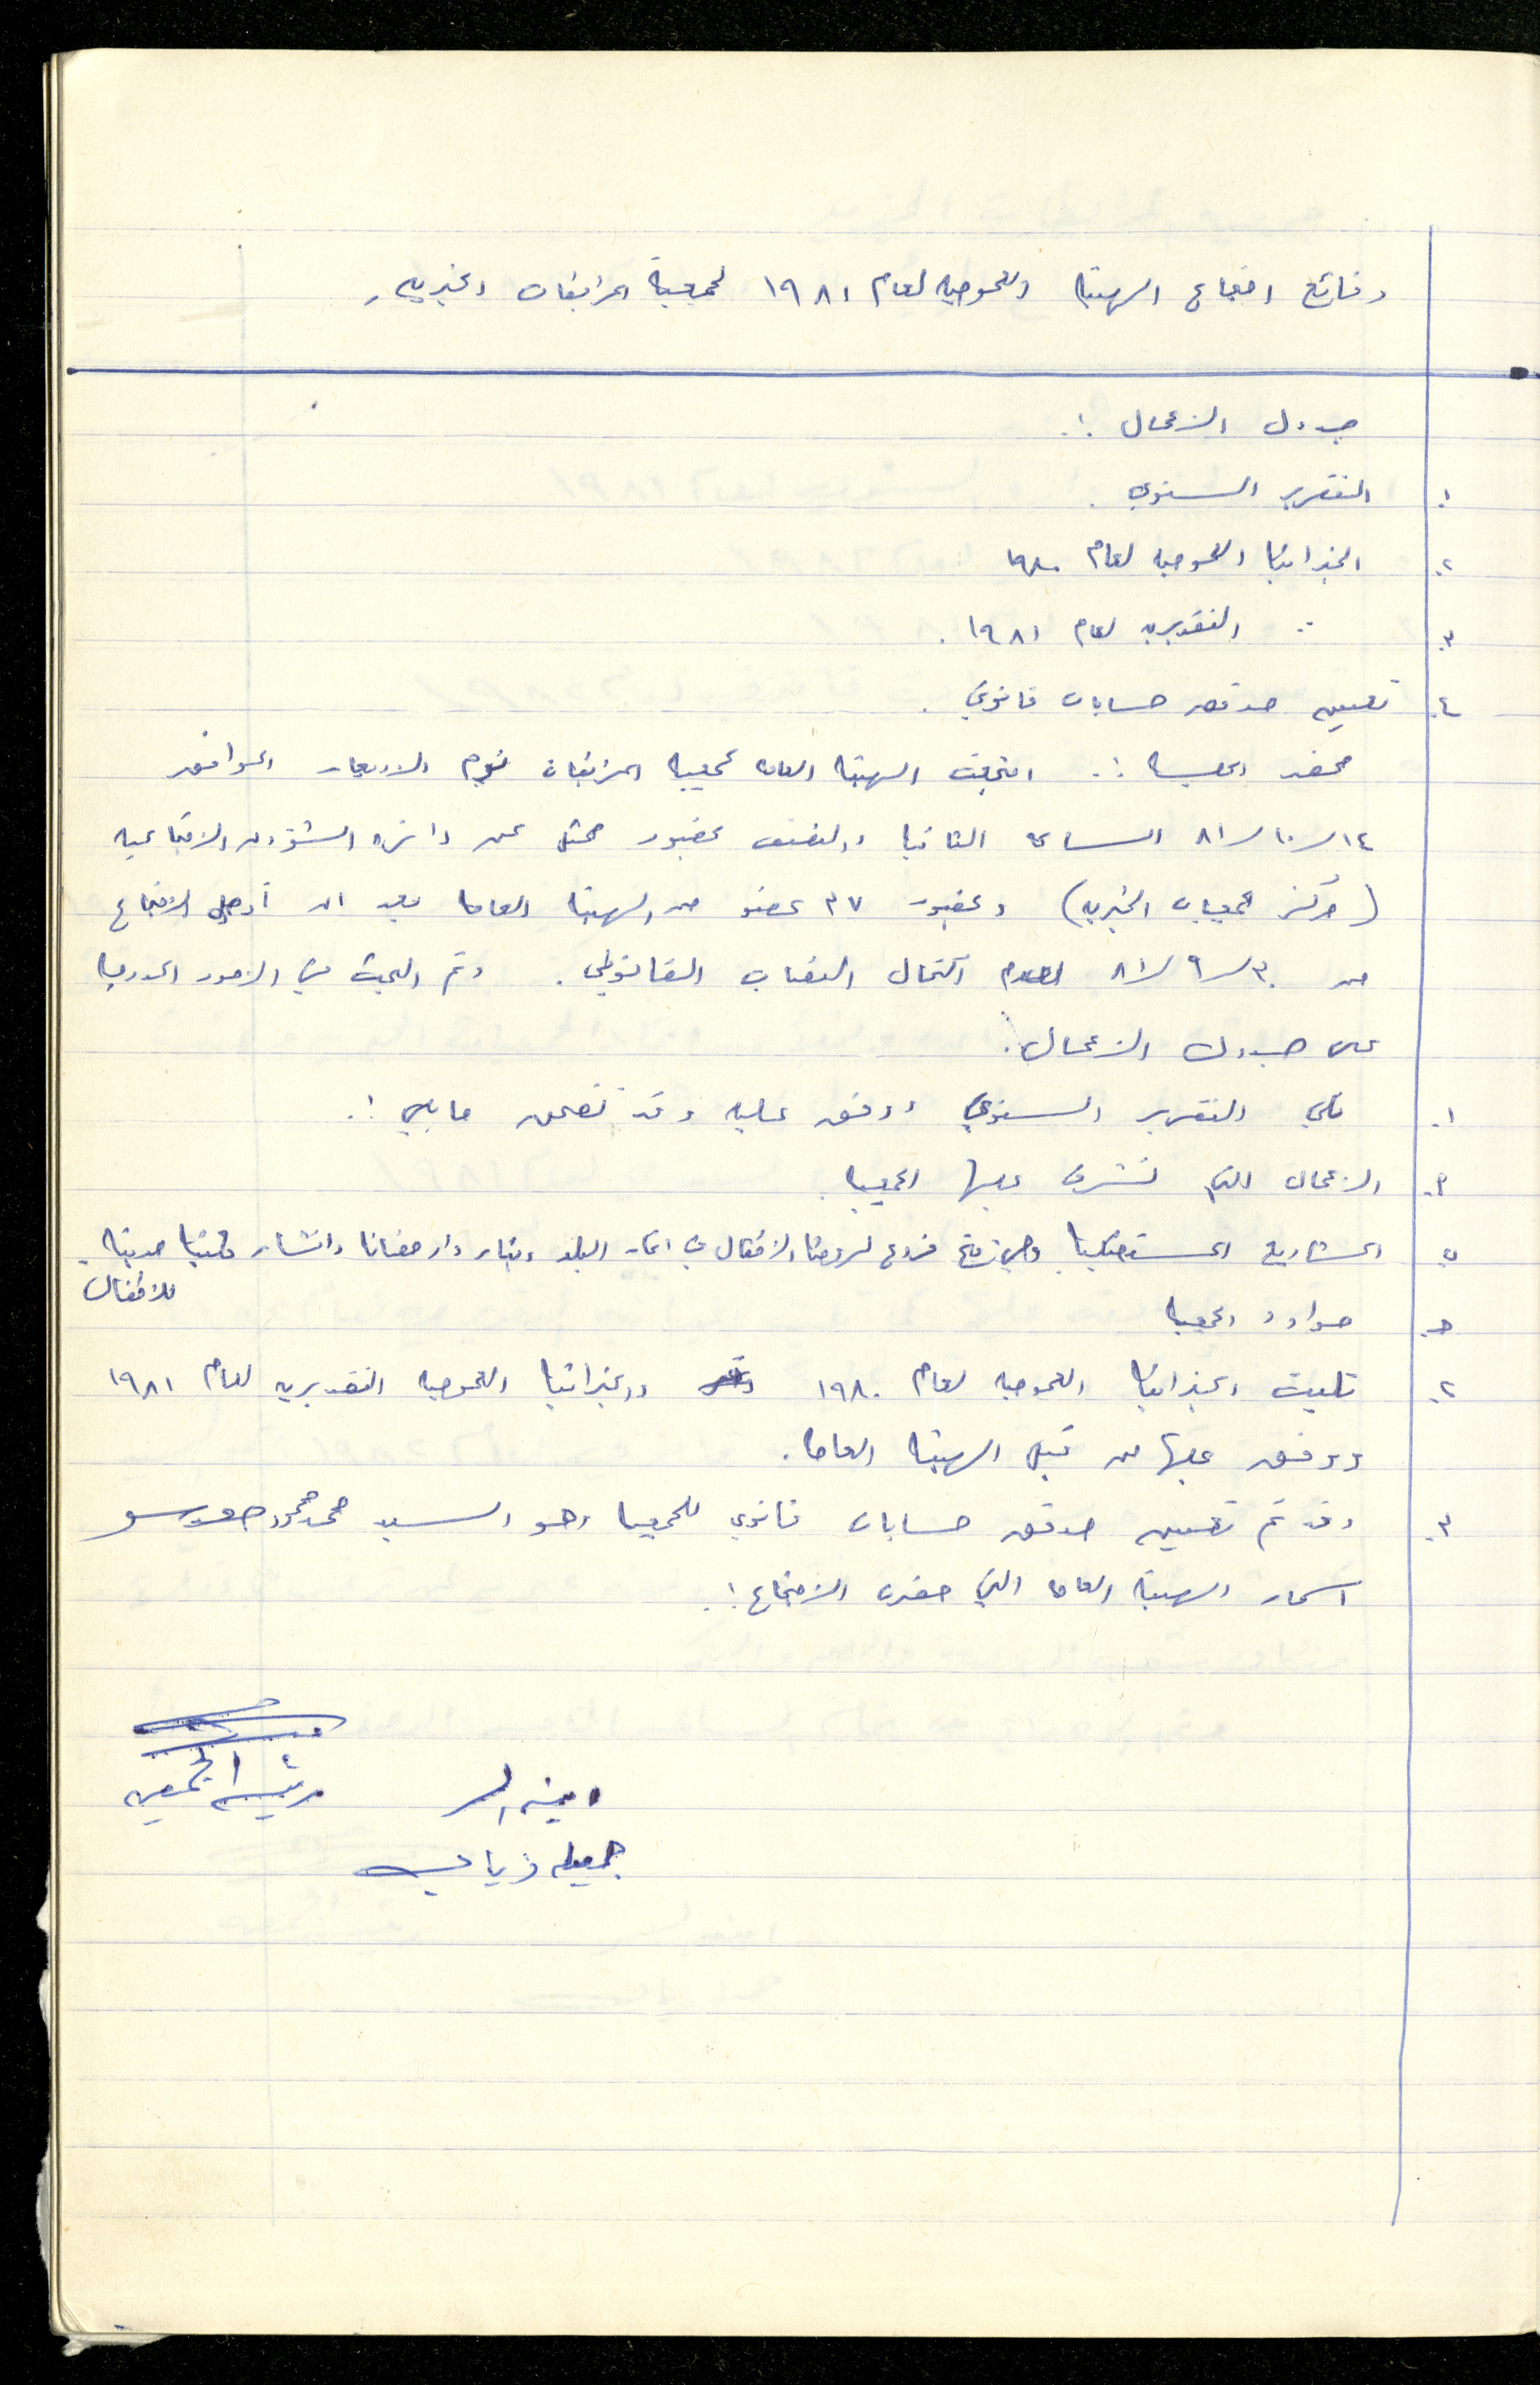 وقائع اجتماع الهيئة العمومية لعام ١٩٨١ لجمعية المرابطات الخيرية
جدول الاعمال :.
١. التقرير السنوي .
٢. الميزانية العمومية لعام ١٩٨٠
٣. :: التقديرية لعام ١٩٨١ .
٤. تعيين مدقق حسابات قانوني .
محضر الجلسة :. اجتمعت الهيئة العامة لجمعية المرابطات يوم الاربعاء الموافق
١٤/١٠/٨١ الساعة الثانية والنصف بحضور ممثل عن دائرة الشؤون الاجتماعية
(مركز الجمعيات الخيرية) وبحضور ٣٧ عضو من الهيئة العامة بعد ان أجل الاجتماع
من ٣٠/٩/٨١ لعدم اكتمال النصاب القانوني . وتم البحث في الامور المدرجة
على جدول الاعمال .
١. تلي التقرير السنوي ووفق عليه وقد تضمن ما يلي :.
أ. الاعمال التي تشرف عليها الجمعية .
ب. المشاريع المستقبلية وهي فتح فروع لروضة الاطفال في انحاء البلد وبناء دار حضانة وانشاء مكتبة حديثة
للاطفال
ج. موارد الجمعية
٢. تليت الميزانية العمومية لعام ١٩٨٠ والميزانية العمومية التقديرية لعام ١٩٨١
ووفق عليها من قبل الهيئة العامة .
٣. وقد تم تعيين مدقق حسابات قانوني للجمعية وهو السيد محمد محمود
اسماء الهيئة العامة التي حضرت الاجتماع :.
امينة السر رئيسة الجمعية
جميله ذياب